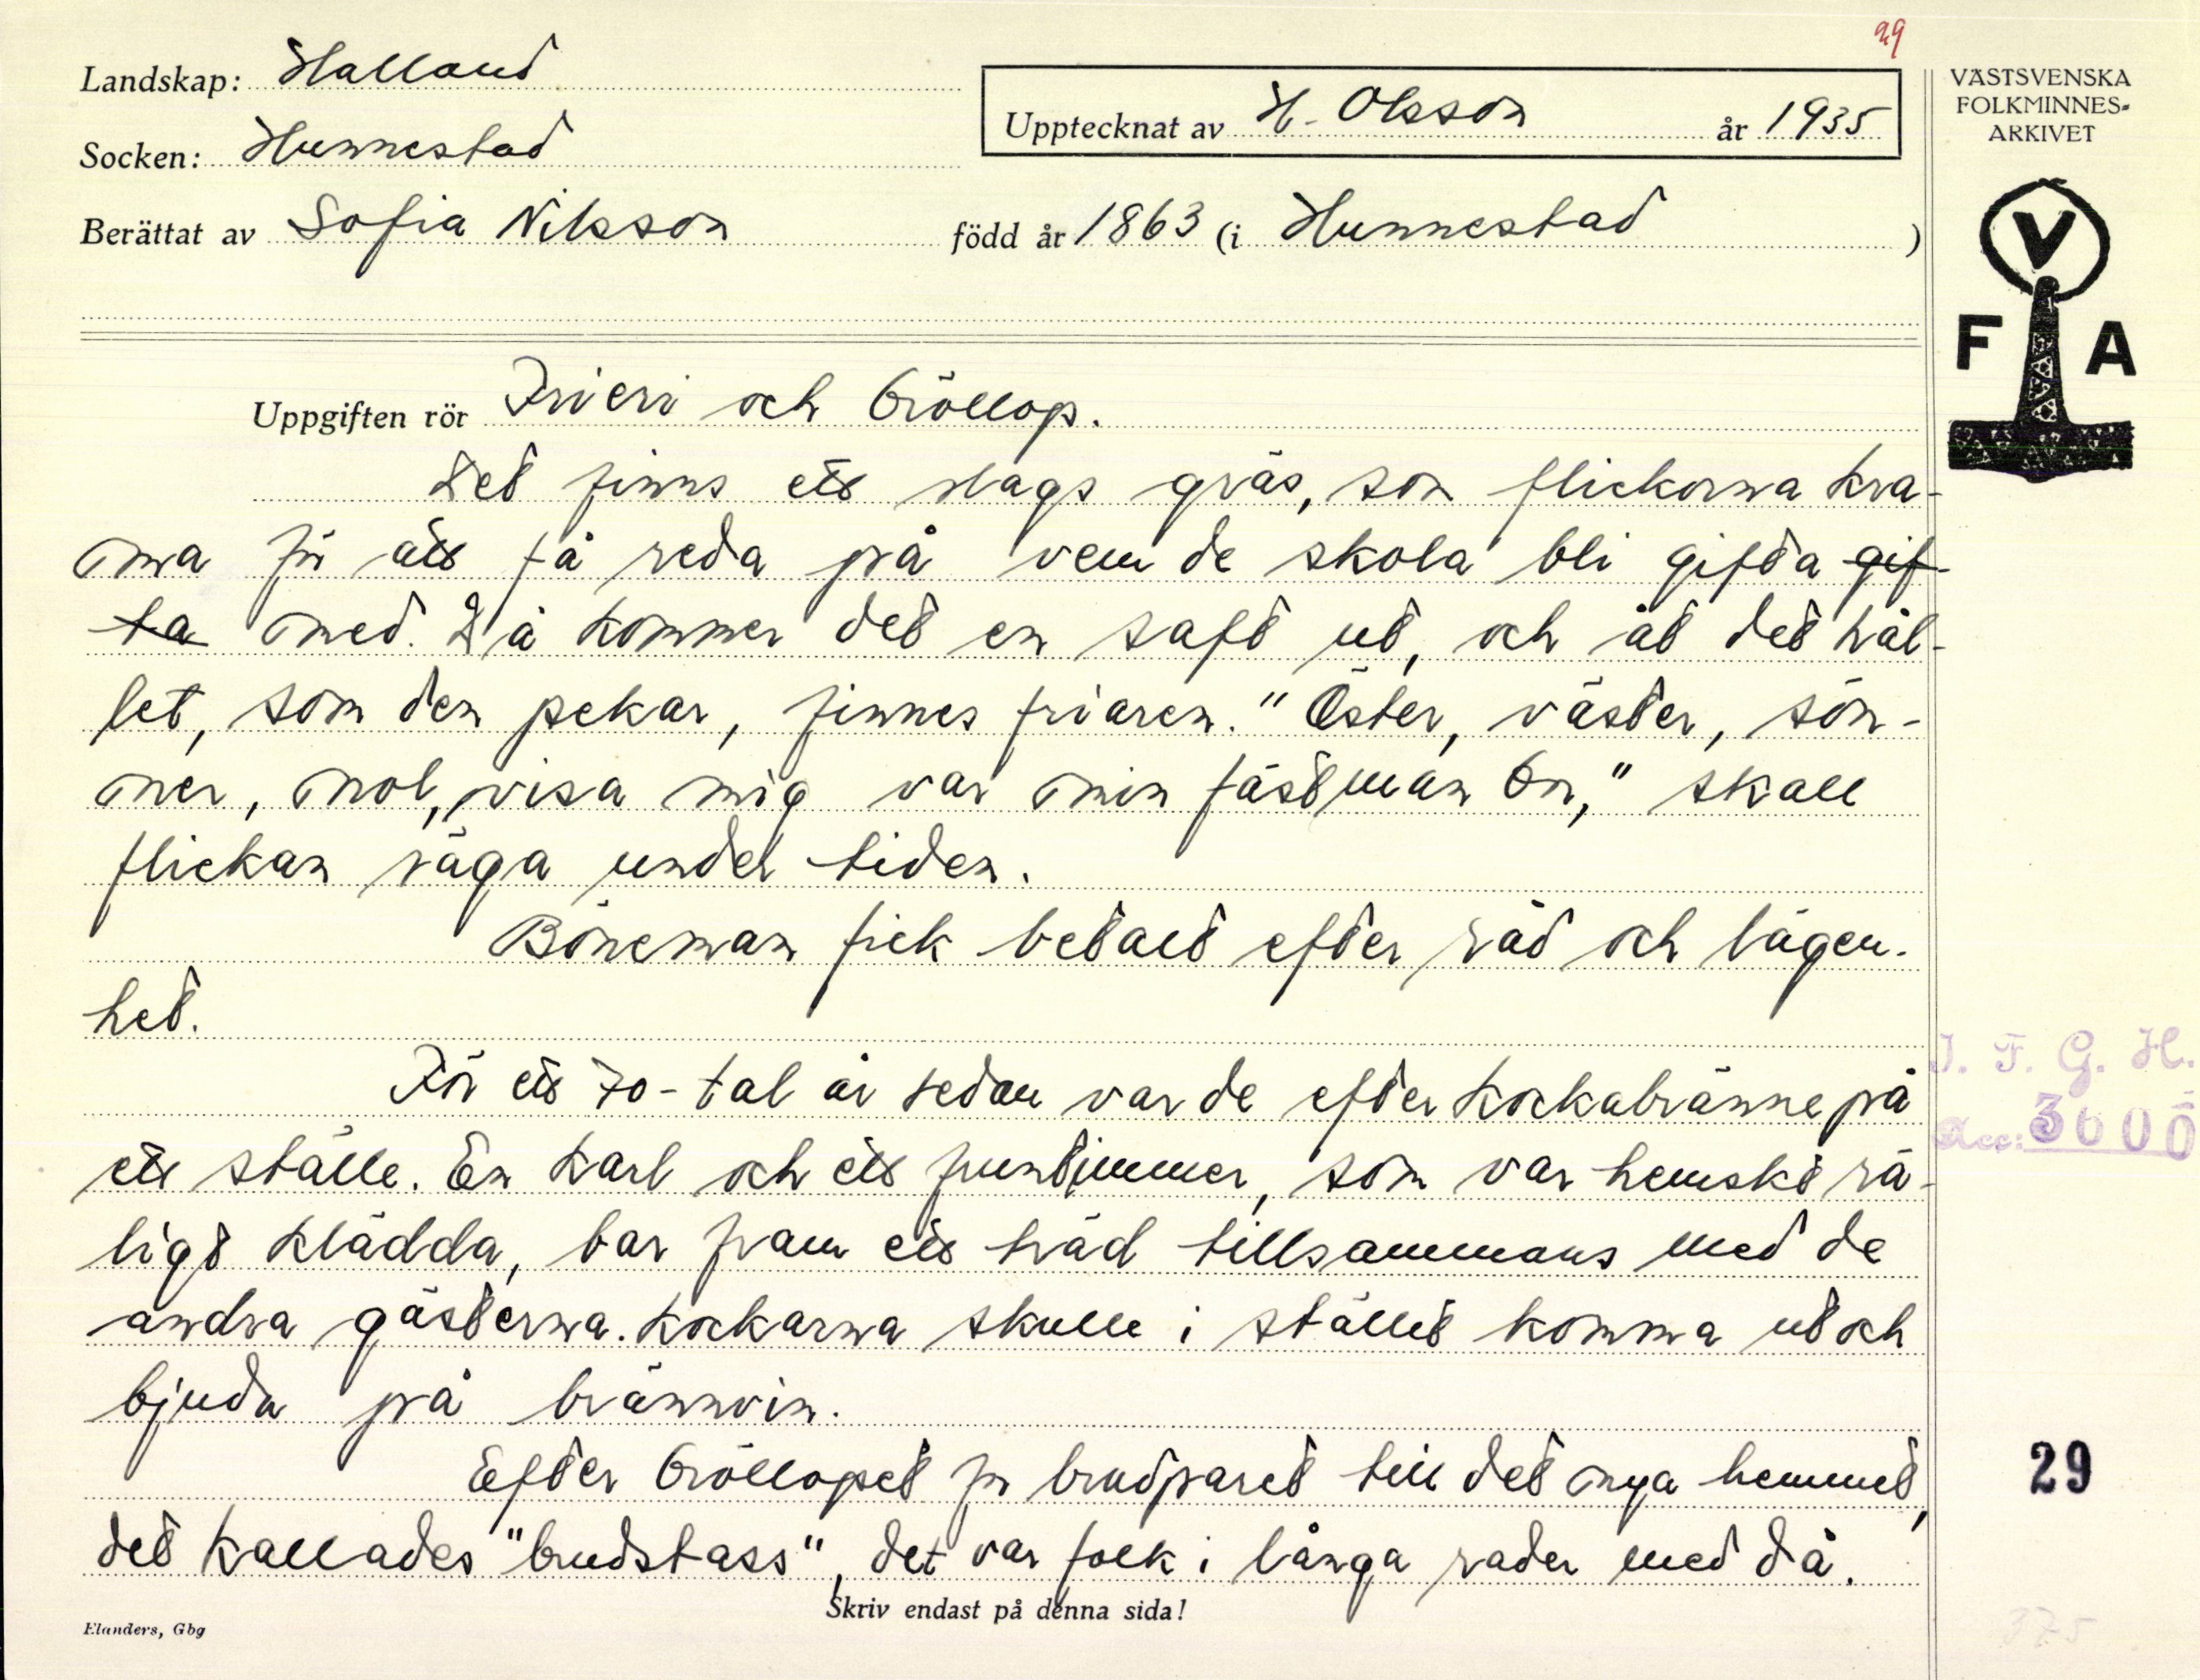 29
Landskap: Halland
Upptecknat av H. Olsson år 1935
VÄSTSVENSKA
FOLKMINNES-
ARKIVET
Socken: Hunnestad
Berättat av Sofia Nilsson född år 1863 (i Hunnestad)
V
F A
Uppgiften rör Frieri och bröllop.
Det finns ett slags gräs, som flickorna kra-
ma för att få reda på vem de skola bli gifta gif-
ta med. Då kommer det en saft ut, och åt det hål-
let, som den pekar, finnes friaren. "Öster, väster, sön-
ner, nol, visa mig var min fästman bor," skall
flickan säga under tiden.
Böneman fick betalt efter råd och lägen-
het.
För ett 70-tal år sedan var de efter kockabränne på
ett ställe. En karl och ett fruntimmer, som var hemskt rä-
ligt klädda, bar fram ett träd tillsammans med de
andra gästerna. Kockarna skulle i stället komma ut och
bjuda på brännvin.
Efter bröllopet for brudparet till det nya hemmet,
det kallades "brudstass", det var folk i långa rader med då.
Skriv endast på denna sida!
Elanders, Gbg
I. F. G. H.
Acc: 3600
29
375